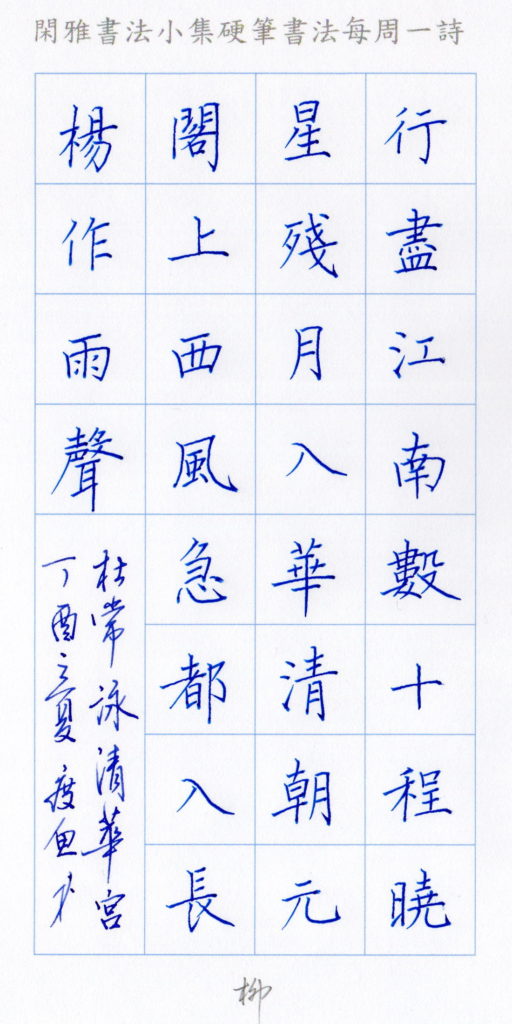 閑雅書法小集硬筆書法每周一詩
行盡江南數十程曉
星殘月入華清朝元
閣上西風急都入長
楊作雨聲
杜常詠清華宮
丁酉之夏
柳